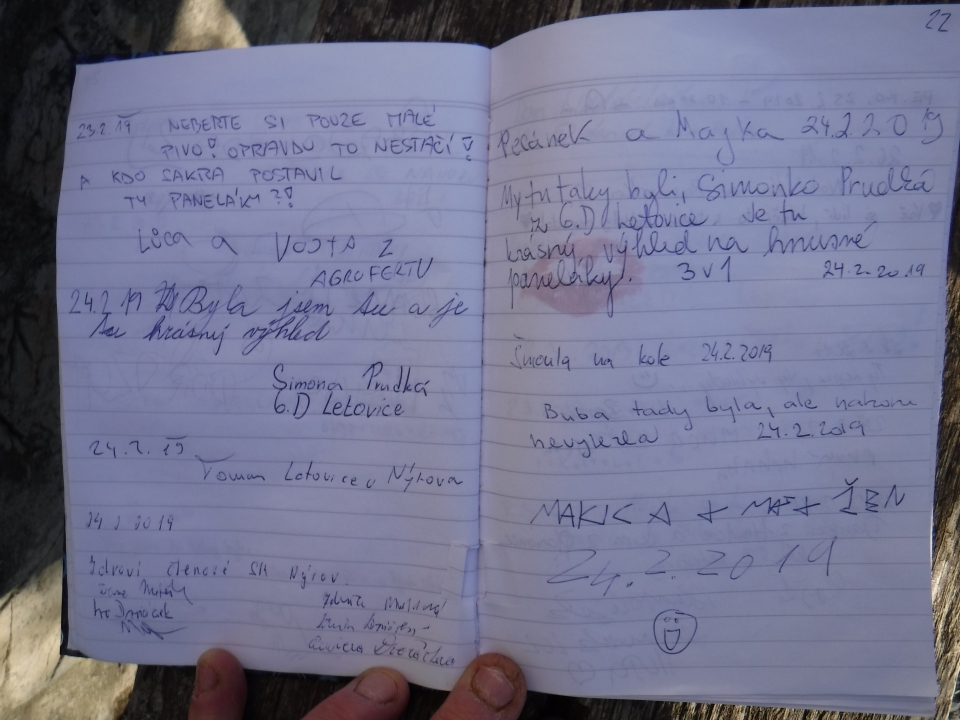 23.2.19 NEBERTE SI POUZE MALÉ
PIVO! OPRAVDU TO NESTAČÍ!
A KDO SAKRA POSTAVIL
TY PANELÁKY?!
Lůca a VOJTA Z
AGROFERTU
24.2.19 Byla jsem tu a je
tu krásný výhled
Simona Prudká
6.D Letovice
24.2.19
Toman Letovice Nýrova
24.2.2019
Zdraví členové SH Nýrov.
22
Pecánek a Majka 24.2.2019
My tu taky byli, Simonko Prudká
z 6.D Letovice. Je tu
krásný výhled na hnusné
paneláky. 3 v 1 24.2.2019
Šmoula na kole 24.2.2019
Buba tady byla, ale nahoru
nevylezla 24.2.2019
24.2.2019